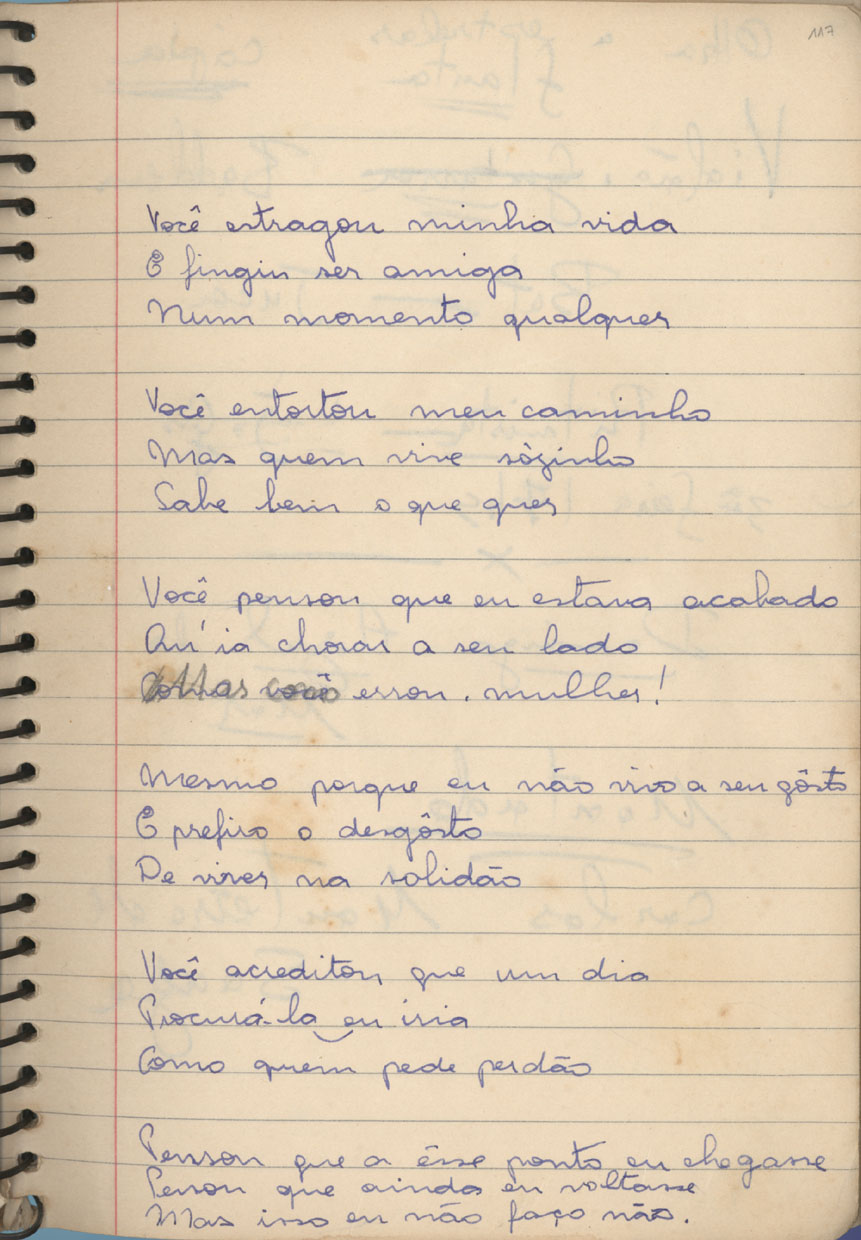 117
Você estragou minha vida
E fingiu ser amiga
Num momento qualquer
Você entortou meu caminho
Mas quem vive sòzinho
Sabe bem o que quer
Você pensou que eu estava acabado
Qu'ia chorar a seu lado
Mas você errou, mulher!
Mesmo porque eu não vivo a seu gôsto
E prefiro o desgôsto
De viver na solidão
Você acreditou, que um dia
Procurá-la eu iria
Como quem pede perdão
Pensou que a êsse ponto eu chegasse
Pensou que ainda eu voltasse
Mas isso eu não faço não.